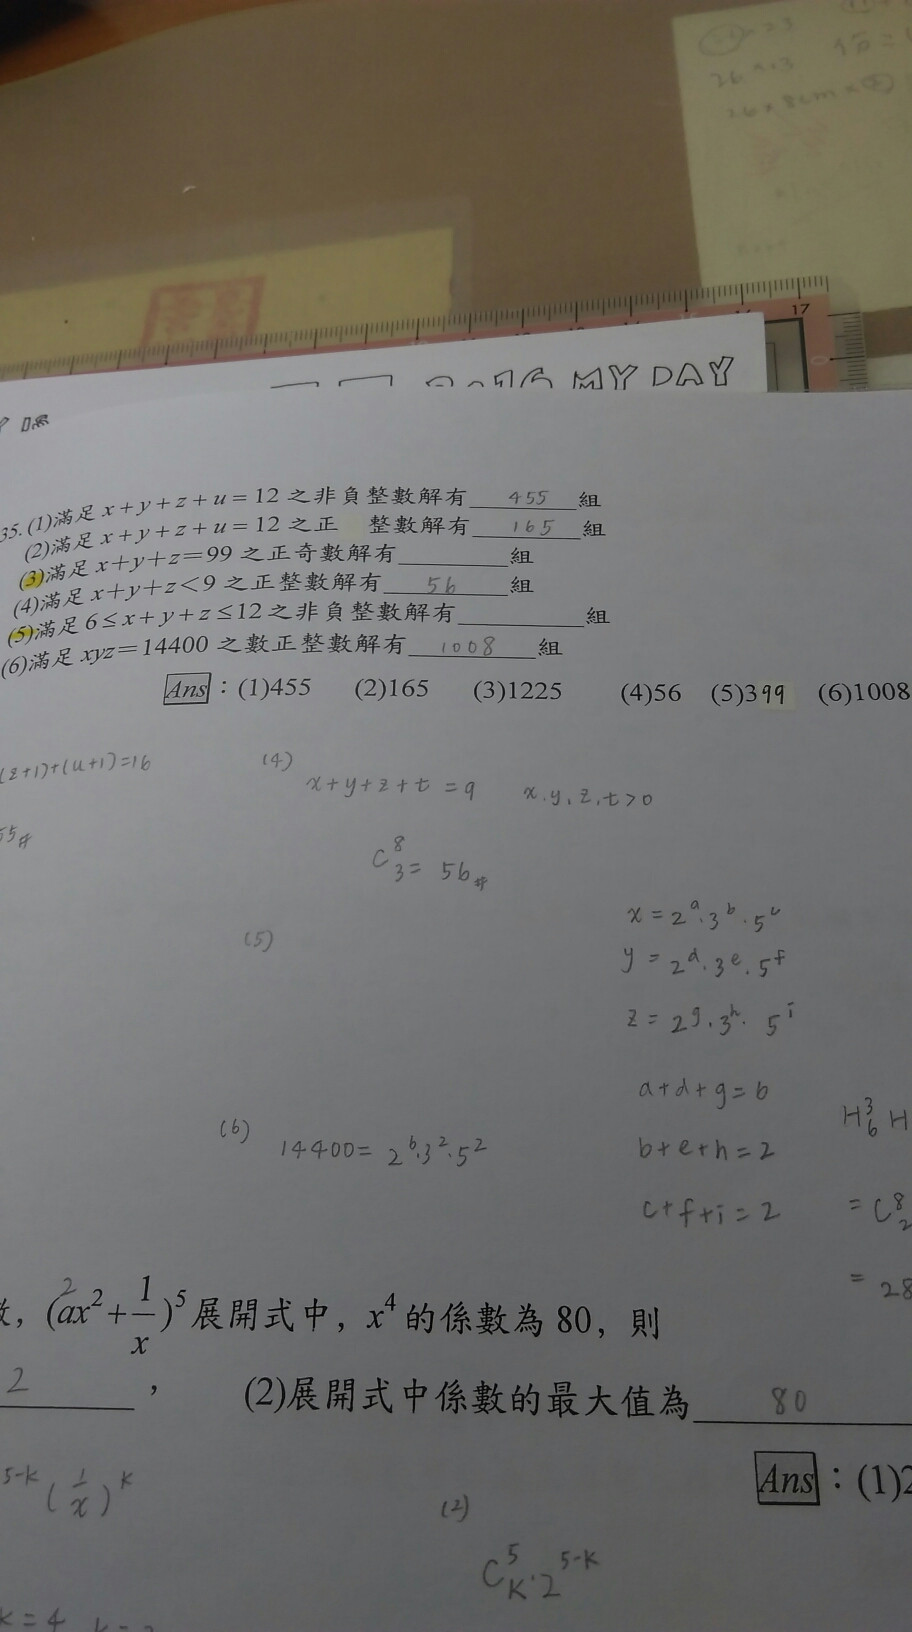 17
2016 MY DAY
35.(1)滿足 x+y+z+u=12 之非負整數解有 455 組
(2)滿足 x+y+z+u=12 之正 整數解有 165 組
(3)滿足 x+y+z=99 之正奇數解有 組
(4)滿足 x+y+z<9 之正整數解有 56 組
(5)滿足 6≤x+y+z≤12之非負整數解有 組
(6)滿足 xyz=14400 之數正整數解有 1008 組
Ans：(1)455 (2)165 (3)1225 (4)56 (5)399 (6)1008
(z+1)+(u+1)=16
(4)
x+y+z+t=9 x.y,z,t>0
55#
C⁸₃=56#
(5)
x=2ᵃ·3ᵇ·5ᶜ
y=2ᵈ·3ᵉ·5ᶠ
z=2ᵍ·3ʰ·5ⁱ
a+d+g=6
(6)
14400=2⁶·3²·5²
b+e+h=2
H³₆ H
c+f+i=2
=C⁸₂
=28
，(ax²+1/x)⁵展開式中，x⁴的係數為80，則
2
2 ， (2)展開式中係數的最大值為 80
Ans：(1)2
5-k (1/x)ᵏ
(2)
C⁵ₖ·2⁵⁻ᵏ
k=4